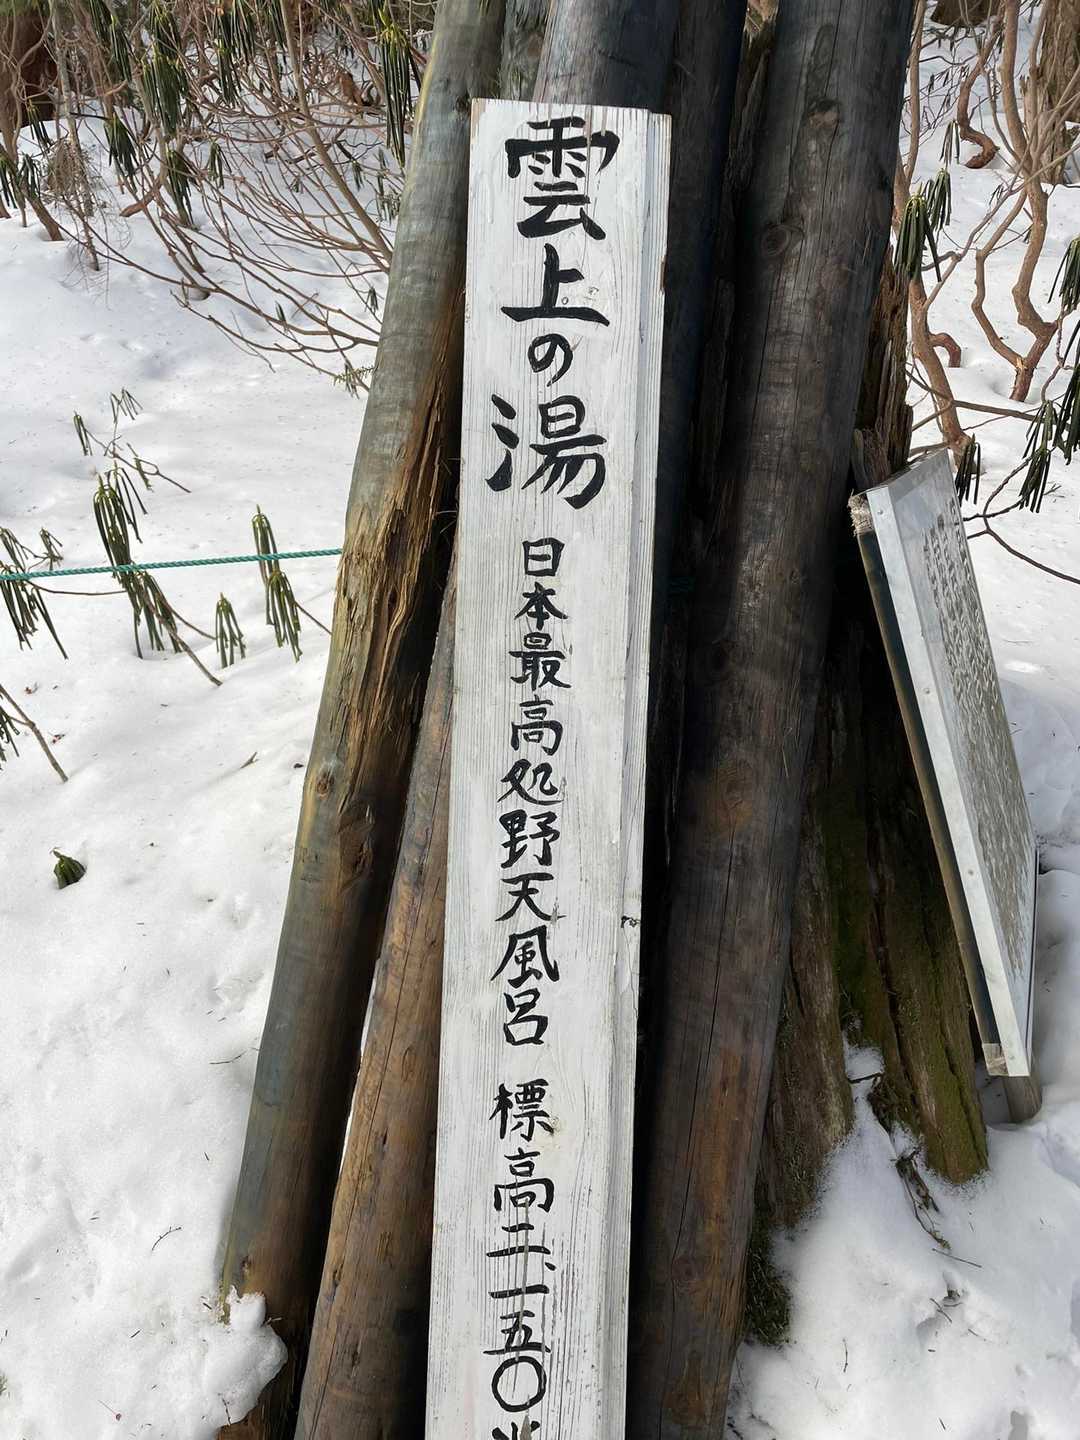 雲上の湯 日本最高処野天風呂 標高二、一五〇米